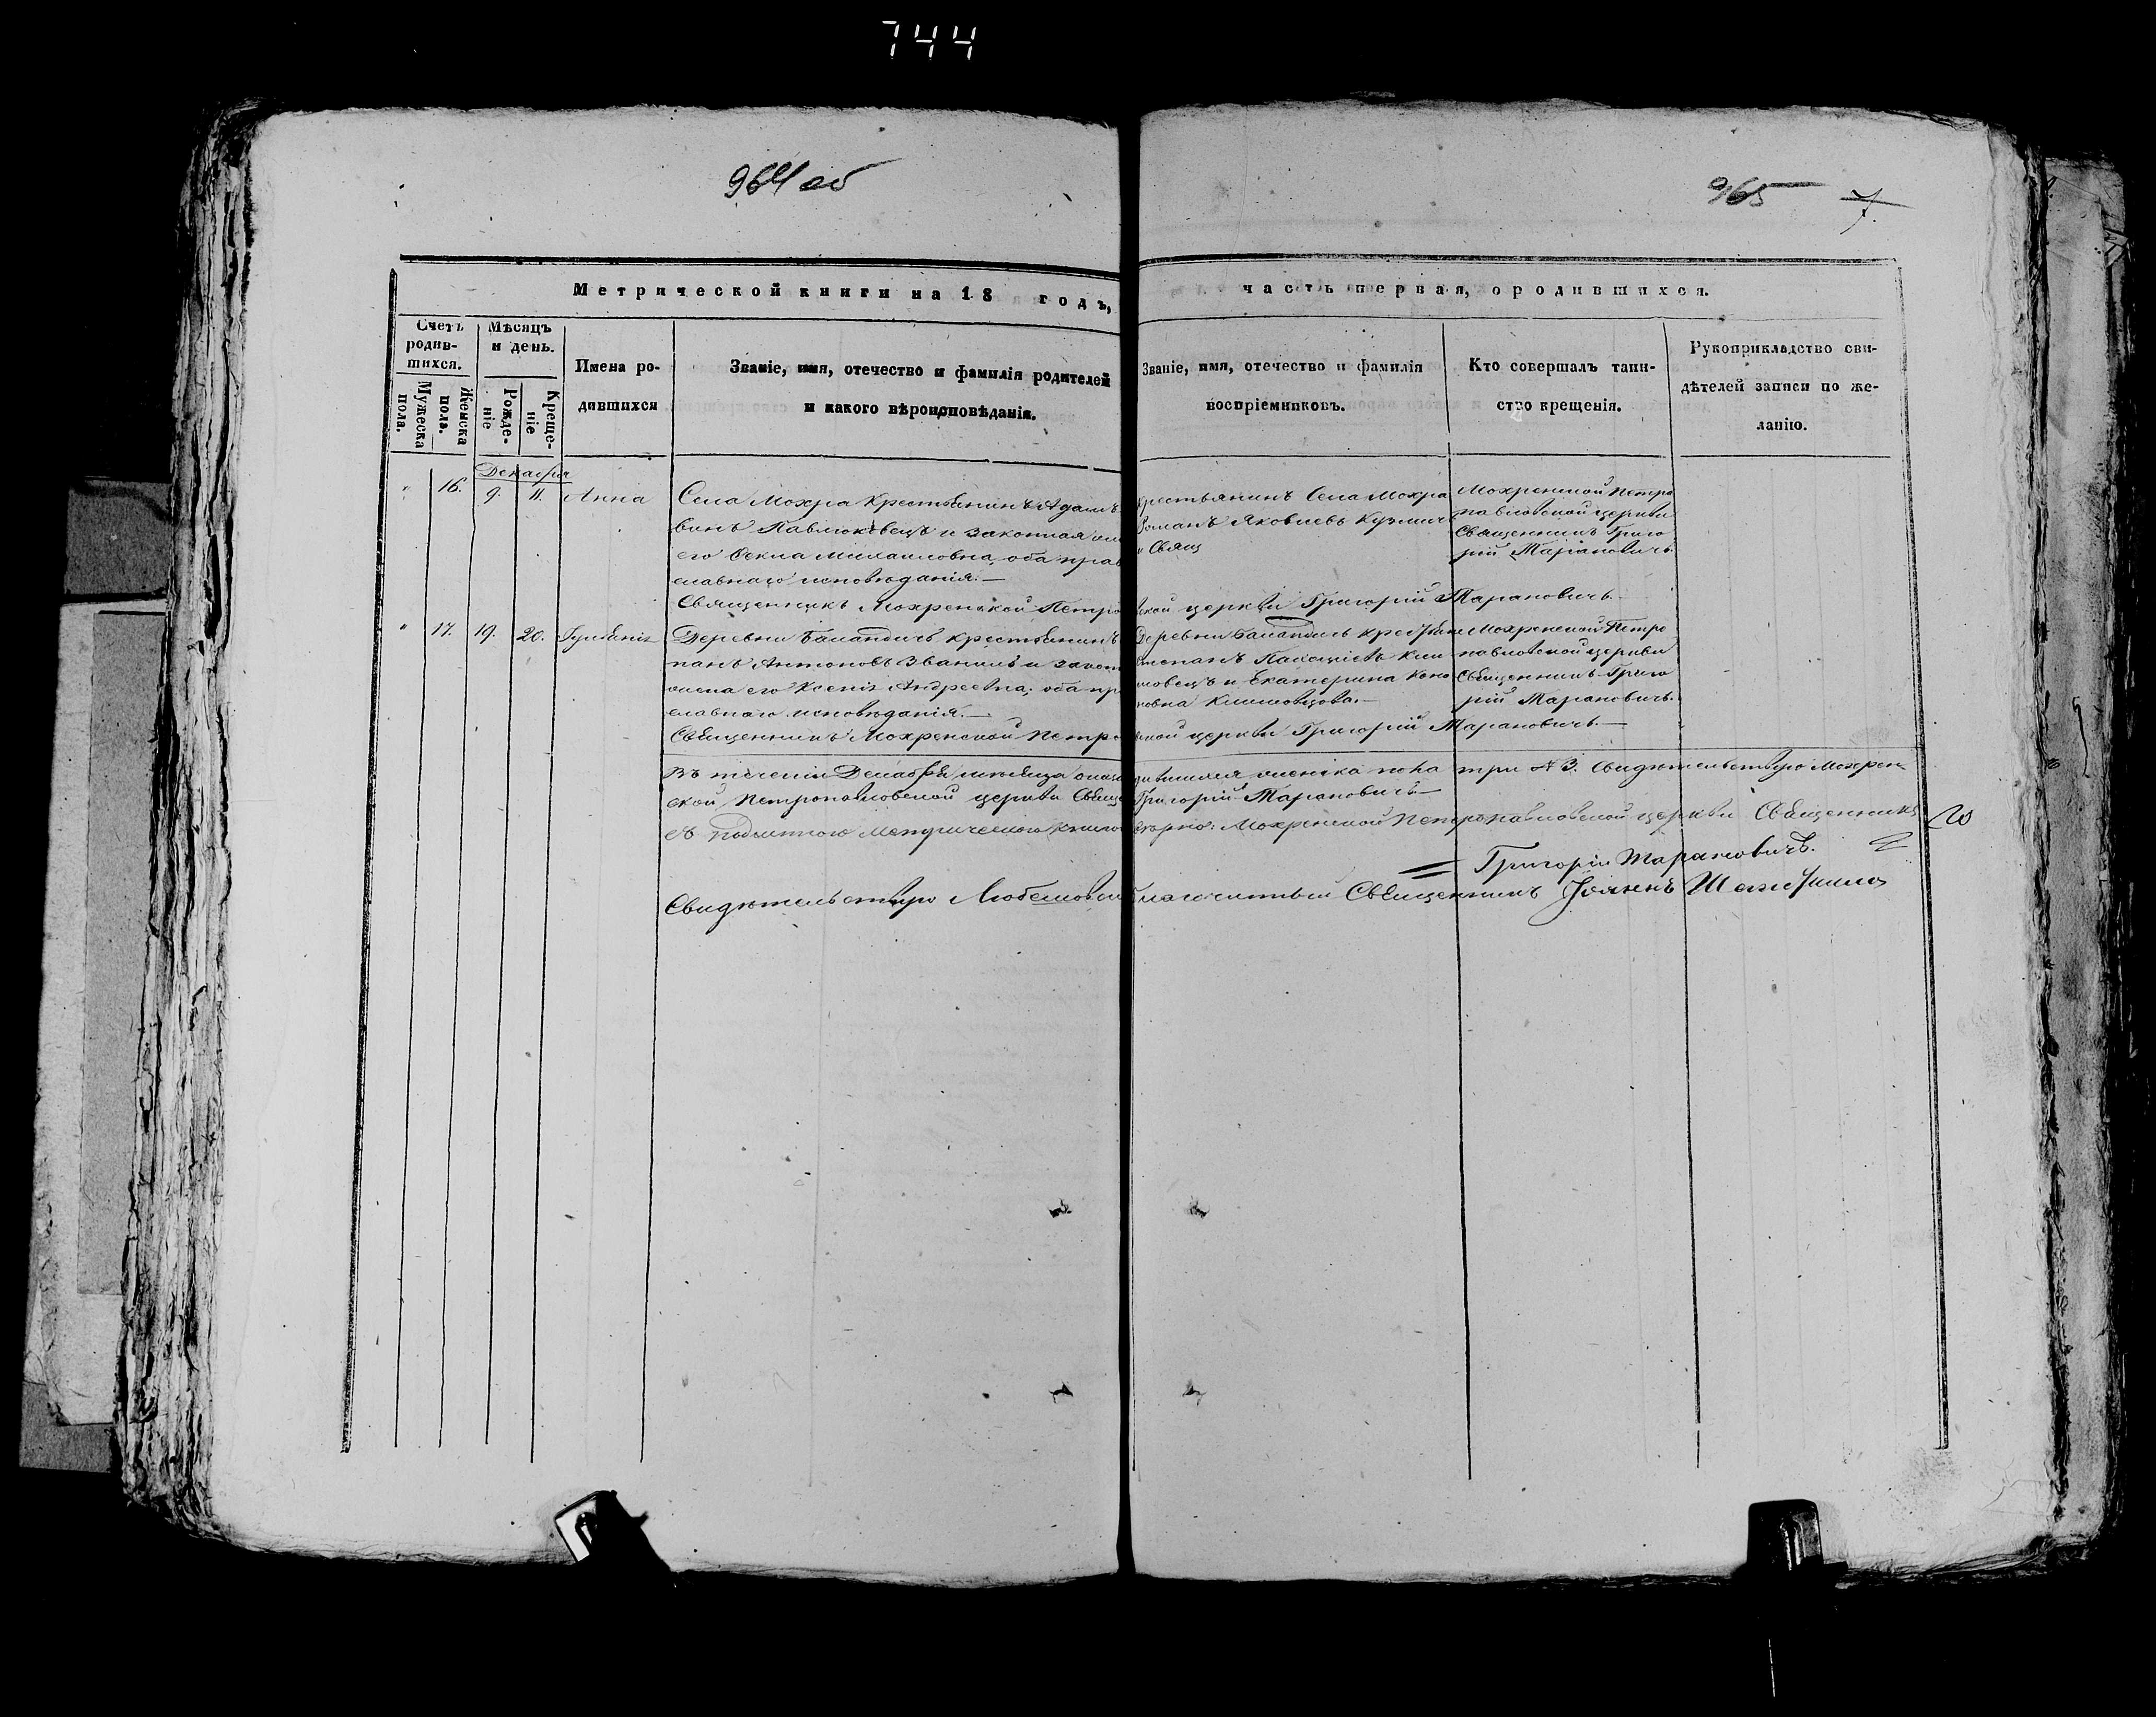 744
964 об
965 7
Метрической книги на 18 годъ,
часть первая, о родившихся.
Счетъ родив-шихся.
Мужеска пола.
Женска пола.
Мѣсяцъ и день.
Рожде-ніе
Креще-ніе
Имена ро-
дившихся
Званіе, имя, отечество и фамилія родителей
и какого вѣроисповѣданія.
Званіе, имя, отечество и фамилія
воспріемниковъ.
Кто совершалъ таин-
ство крещенія.
Рукоприкладство сви-
дѣтелей записи по же-
ланію.
Декабря
" 16. 9. 11. Анна
Села Мохра Крестьянинъ Адамъ
Павлюковецъ и законная
его Ѳекла Михаиловна, оба прав
славнаго исповѣданія.—
крестьянинъ Села Мохра
Романъ Яковлевъ
Мохренской Петро
павловской церкви
Священникъ Григо
рій Тарановичъ.
Священникъ Мохренской Петро
ской церкви Григорій Тарановичъ.—
" 17. 19. 20. Іуліанія
Деревни крестьянинъ
панъ Антоновъ и закон
жена его Ксенія Андреевна; оба пр
славнаго исповѣданія.—
Деревни
и Екатерина
новна
Мохренской Петро
павловской церкви
Священникъ Григо
рій Тарановичъ.
Священникъ Мохренской Петро
ской церкви Григорій Тарановичъ.—
Въ теченіи Декабря мѣсяца
женска пола три № 3. Свидѣтельствую Мохрен
ской Петропавловской церкви Свяще
Григорій Тарановичъ—
Съ подлинною Метрическою книгою
вѣрно: Мохренской Петропавловской церкви Священникъ
Григорій Тарановичъ.
Свидѣтельствую Любешовскій
Благочинный Священникъ Іоаннъ